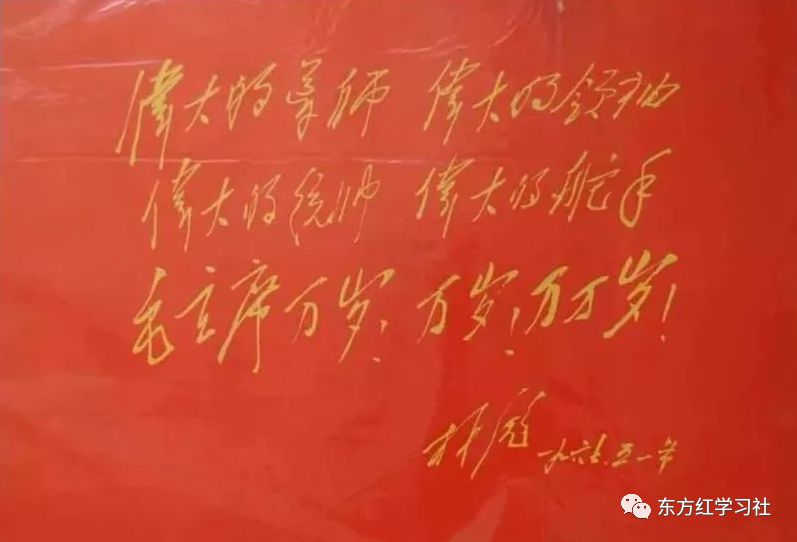 偉大的导师 偉大的领袖
偉大的统帅 偉大的舵手
毛主席万岁！万岁！万万岁！
林彪
一九六七.五一节
东方红学习社